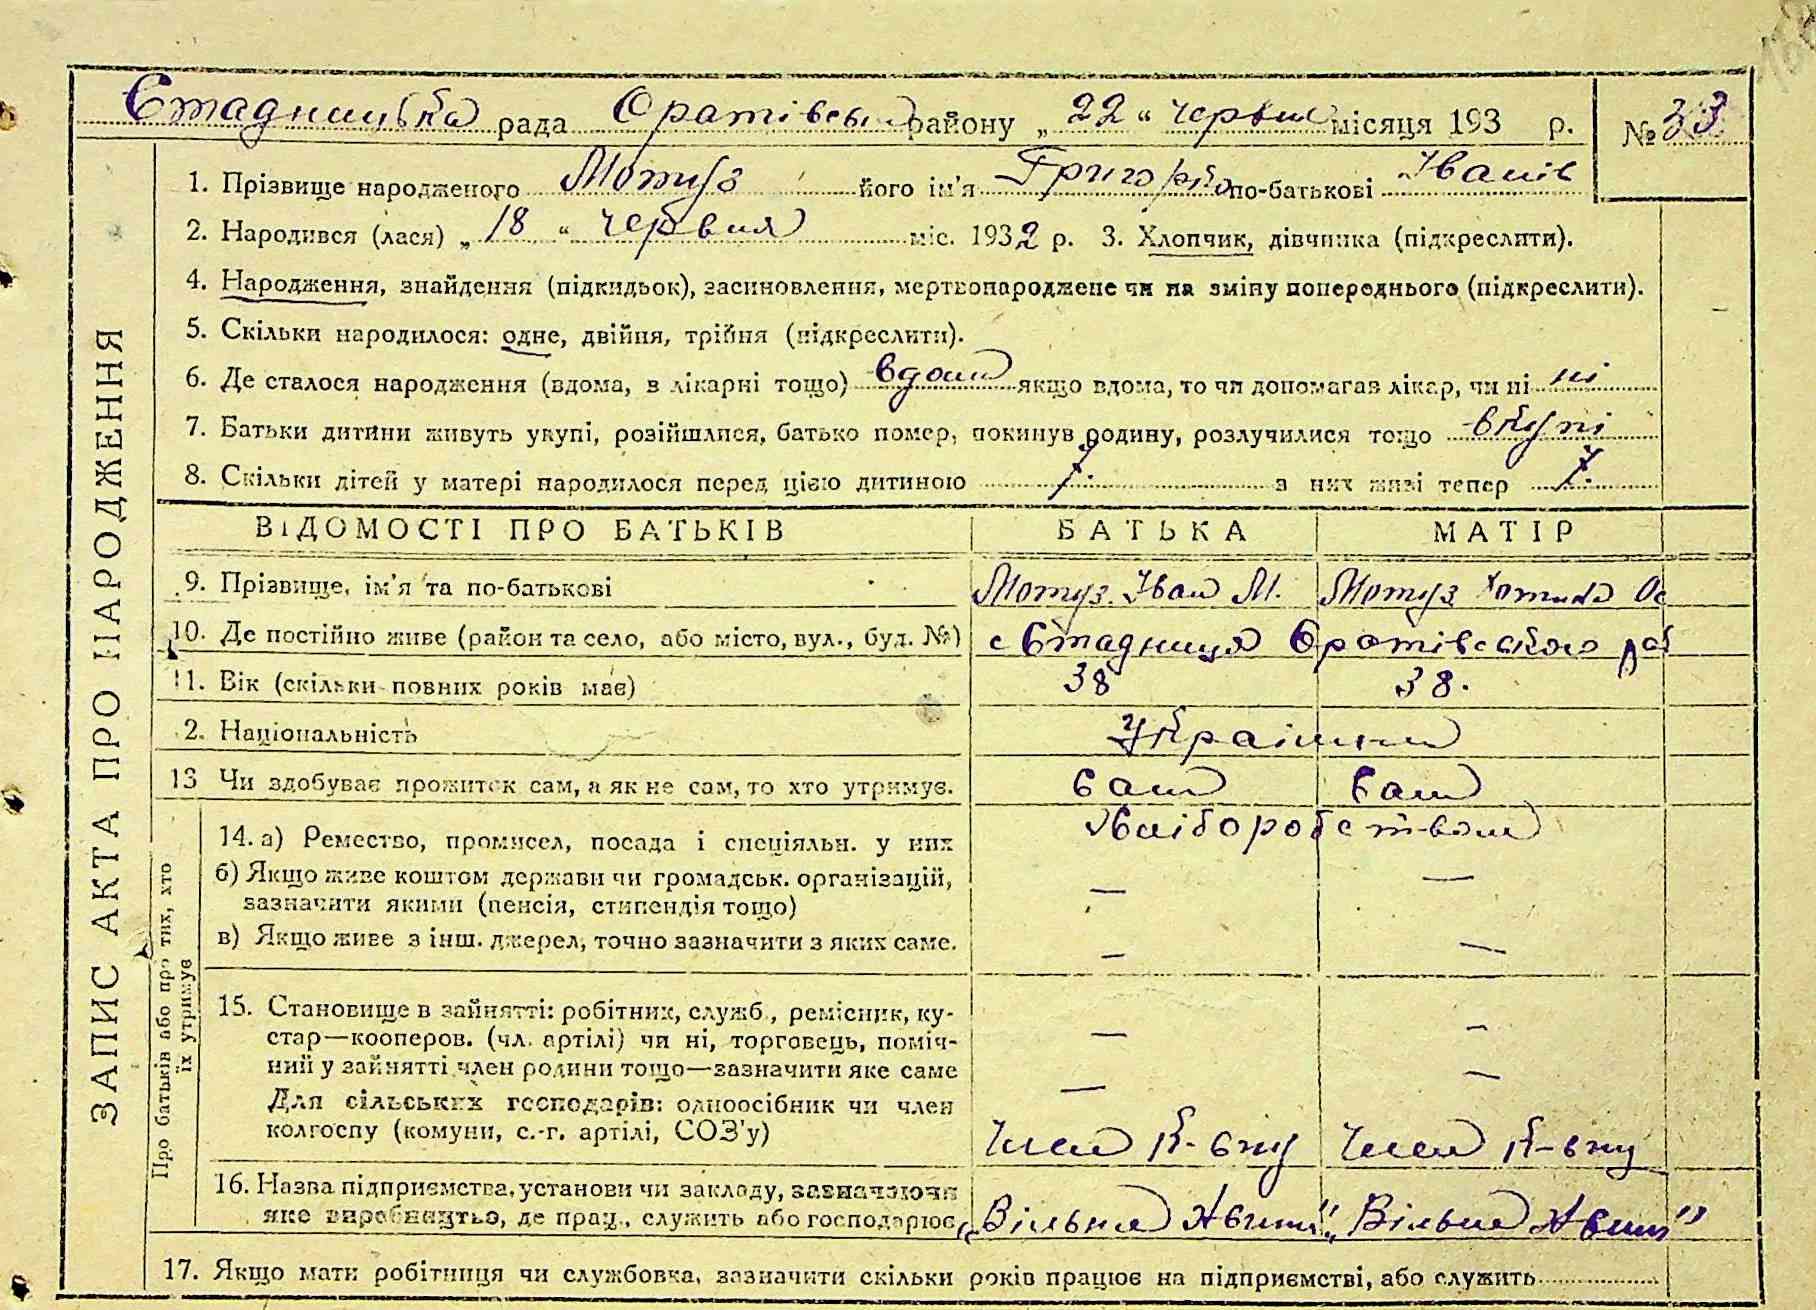 Стадницька рада Оратівськ району „22“ червня місяця 193 р. № 33
1. Прізвище народженого Мотуз його ім'я Григорій по-батькові Іванів
2. Народився (лася) „18“ червня міс. 1932 р. 3. Хлопчик, дівчинка (підкреслити).
4. Народження, знайдення (підкидьок), засиновлення, мертвонароджене чи на зміну попереднього (підкреслити).
5. Скільки народилося: одне, двійня, трійня (підкреслити).
6. Де сталося народження (вдома, в лікарні тощо) вдома якщо вдома, то чи допомагав лікар, чи ні ні
7. Батьки дитини живуть укупі, розійшлися, батько помер, покинув родину, розлучилися тощо вкупі
8. Скільки дітей у матері народилося перед цією дитиною 7. з них живі тепер 7.
ЗАПИС АКТА ПРО НАРОДЖЕННЯ
ВІДОМОСТІ ПРО БАТЬКІВ БАТЬКА МАТІР
9. Прізвище, ім'я та по-батькові Мотуз Іван М. Мотуз Хотина Ос
10. Де постійно живе (район та село, або місто, вул., буд. №) с Стадниця Оратівського
11. Вік (скільки повних років має) 38 38.
2. Національність Українці
13 Чи здобуває прожиток сам, а як не сам, то хто утримує. сам сама
Про батьків або про тих, хто
їх утримує
14. а) Ремество, промисел, посада і спеціяльн. у них хліборобством
б) Якщо живе коштом держави чи громадськ. організацій, — —
зазначити якими (пенсія, стипендія тощо)
в) Якщо живе з інш. джерел, точно зазначити з яких саме. — —
15. Становище в зайнятті: робітник, служб., ремісник, ку-
стар—кооперов. (чл. артілі) чи ні, торговець, поміч- — —
ний у зайнятті член родини тощо—зазначити яке саме — —
Для сільських господарів: одноосібник чи член
колгоспу (комуни, с.-г. артілі, СОЗ'у) Член к-спу Член к-спу
16. Назва підприємства, установи чи закладу, зазначаючи
яке виробництво, де прац., служить або господарює „Вільне Життя“ „Вільне Життя“
17. Якщо мати робітниця чи службовка, зазначити скільки років працює на підприємстві, або служить